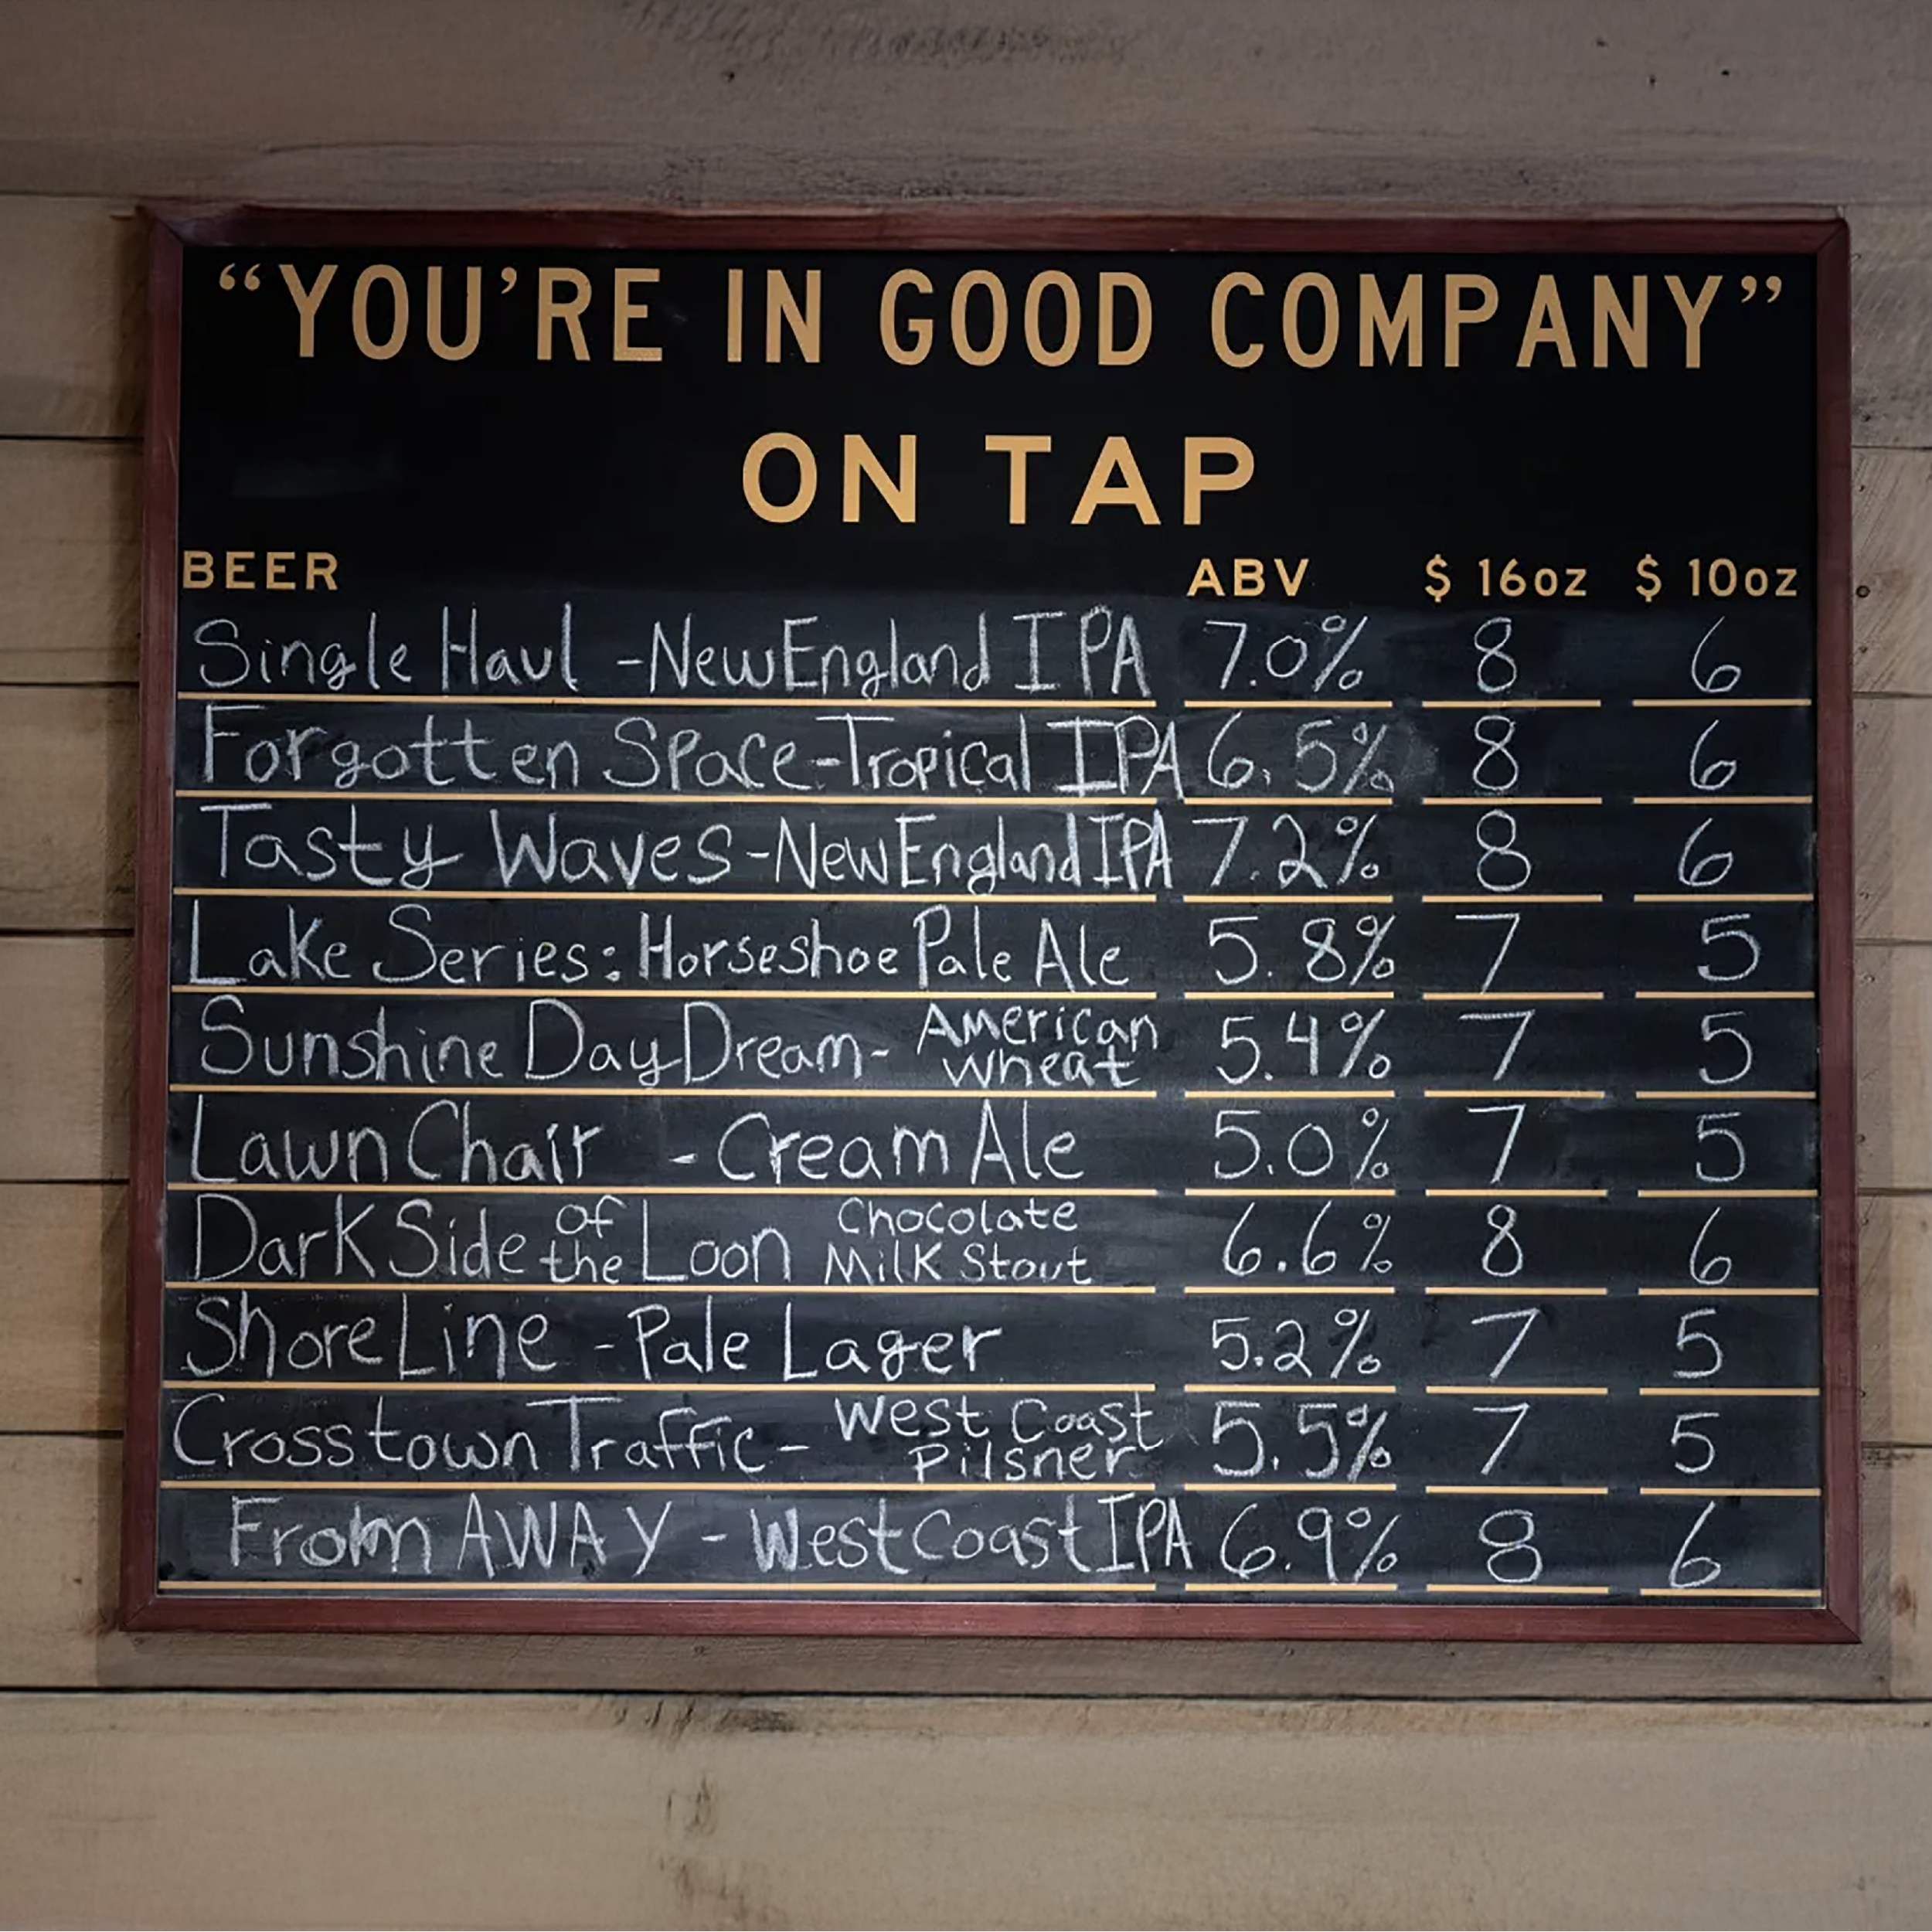 “YOU’RE IN GOOD COMPANY”
ON TAP
BEER ABV $ 16oz $ 10oz
Single Haul - New England IPA 7.0% 8 6
Forgotten Space - Tropical IPA 6.5% 8 6
Tasty Waves - New England IPA 7.2% 8 6
Lake Series: Horseshoe Pale Ale 5.8% 7 5
Sunshine Day Dream - American Wheat 5.4% 7 5
Lawn Chair - Cream Ale 5.0% 7 5
Dark Side of the Loon Chocolate Milk Stout 6.6% 8 6
Shore Line - Pale Lager 5.2% 7 5
Crosstown Traffic - West Coast Pilsner 5.5% 7 5
From AWAY - West Coast IPA 6.9% 8 6